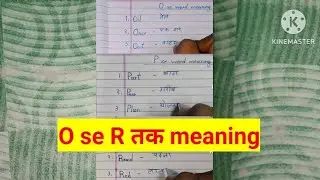 O se word meaning
1. Oil - तेल
2. Once - एक बार
3. Out - बाहर
P se word meaning
1. Part -
2. Poor - गरीब
3. Plan - योजना
O se R तक meaning
1. Read - पढ़ना
2. Red - लाल
KINEMASTER